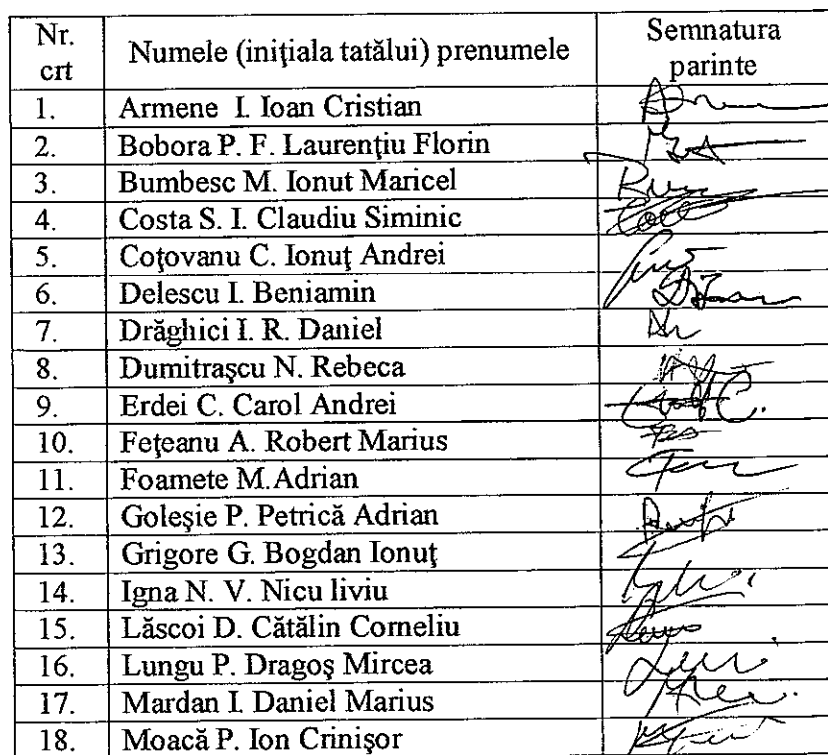 Nr. crt Numele (iniţiala tatălui) prenumele Semnatura parinte
1. Armene I. Ioan Cristian
2. Bobora P. F. Laurenţiu Florin
3. Bumbesc M. Ionut Maricel
4. Costa S. I. Claudiu Siminic
5. Coţovanu C. Ionuţ Andrei
6. Delescu I. Beniamin
7. Drăghici I. R. Daniel
8. Dumitraşcu N. Rebeca
9. Erdei C. Carol Andrei
10. Feţeanu A. Robert Marius
11. Foamete M.Adrian
12. Goleşie P. Petrică Adrian
13. Grigore G. Bogdan Ionuţ
14. Igna N. V. Nicu liviu
15. Lăscoi D. Cătălin Corneliu
16. Lungu P. Dragoş Mircea
17. Mardan I. Daniel Marius
18. Moacă P. Ion Crinişor